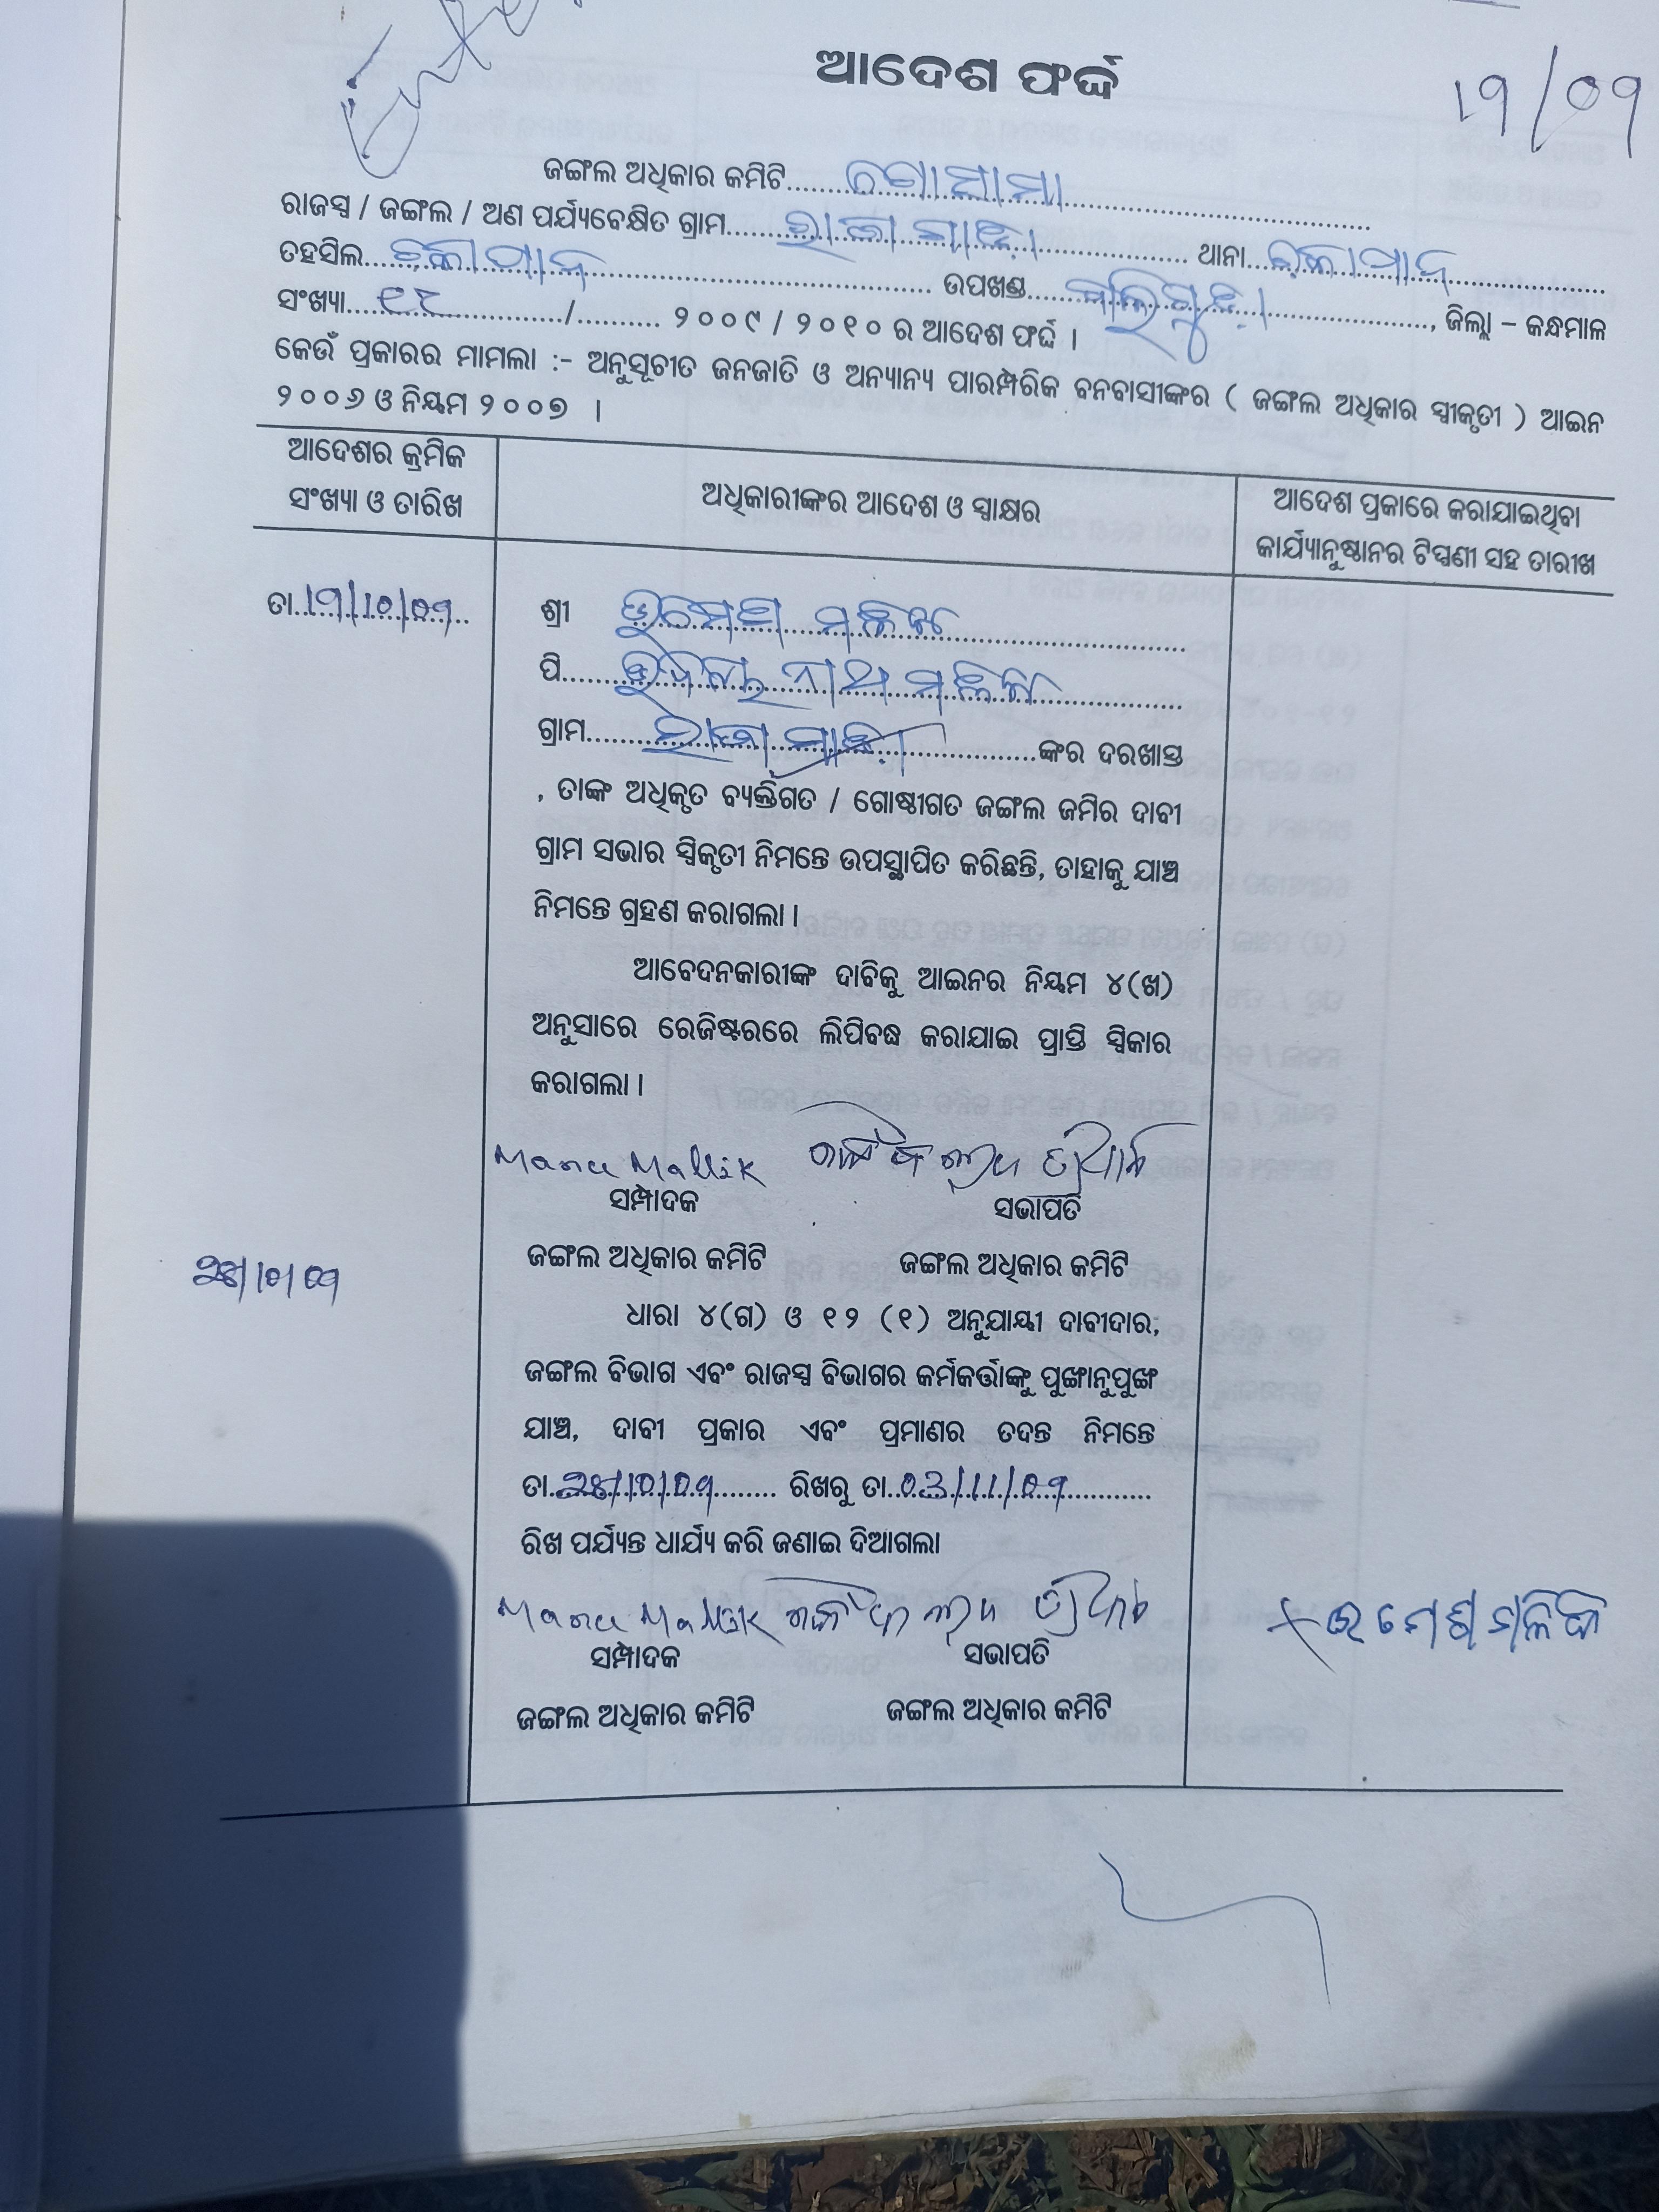 ଆଦେଶ ଫର୍ଦ୍ଦ
୧୩/୦୩
ଜଙ୍ଗଲ ଅଧିକାର କମିଟି
ରାଜସ୍ୱ / ଜଙ୍ଗଲ / ଅଣ ପର୍ଯ୍ୟବେକ୍ଷିତ ଗ୍ରାମ ଥାନା
ତହସିଲ ଉପଖଣ୍ଡ ବାଲିଗୁଡ଼ା, ଜିଲ୍ଲା – କନ୍ଧମାଳ
ସଂଖ୍ୟା / ୨୦୦୯ / ୨୦୧୦ ର ଆଦେଶ ଫର୍ଦ୍ଦ ।
କେଉଁ ପ୍ରକାରର ମାମଲା :- ଅନୁସୂଚୀତ ଜନଜାତି ଓ ଅନ୍ୟାନ୍ୟ ପାରମ୍ପରିକ ବନବାସୀଙ୍କର ( ଜଙ୍ଗଲ ଅଧିକାର ସ୍ୱୀକୃତୀ ) ଆଇନ
୨୦୦୬ ଓ ନିୟମ ୨୦୦୭ ।
ଆଦେଶର କ୍ରମିକ
ସଂଖ୍ୟା ଓ ତାରିଖ
ଅଧିକାରୀଙ୍କର ଆଦେଶ ଓ ସ୍ୱାକ୍ଷର
ଆଦେଶ ପ୍ରକାରେ କରାଯାଇଥିବା
କାର୍ଯ୍ୟାନୁଷ୍ଠାନର ଟିପ୍ପଣୀ ସହ ତାରୀଖ
ତା
ଶ୍ରୀ ମଲ୍ଲିକ
ପି ମଲ୍ଲିକ
ଗ୍ରାମ ଙ୍କର ଦରଖାସ୍ତ
, ତାଙ୍କ ଅଧିକୃତ ବ୍ୟକ୍ତିଗତ / ଗୋଷ୍ଠୀଗତ ଜଙ୍ଗଲ ଜମିର ଦାବୀ
ଗ୍ରାମ ସଭାର ସ୍ୱିକୃତୀ ନିମନ୍ତେ ଉପସ୍ଥାପିତ କରିଛନ୍ତି, ତାହାକୁ ଯାଞ୍ଚ
ନିମନ୍ତେ ଗ୍ରହଣ କରାଗଲା ।
ଆବେଦନକାରୀଙ୍କ ଦାବିକୁ ଆଇନର ନିୟମ ୪(ଖ)
ଅନୁସାରେ ରେଜିଷ୍ଟରରେ ଲିପିବଦ୍ଧ କରାଯାଇ ପ୍ରାପ୍ତି ସ୍ୱିକାର
କରାଗଲା ।
Manu Mallik
ସମ୍ପାଦକ ସଭାପତି
ଜଙ୍ଗଲ ଅଧିକାର କମିଟି ଜଙ୍ଗଲ ଅଧିକାର କମିଟି
ଧାରା ୪(ଗ) ଓ ୧୨ (୧) ଅନୁଯାୟୀ ଦାବୀଦାର,
ଜଙ୍ଗଲ ବିଭାଗ ଏବଂ ରାଜସ୍ୱ ବିଭାଗର କର୍ମକର୍ତ୍ତାଙ୍କୁ ପୁଙ୍ଖାନୁପୁଙ୍ଖ
ଯାଞ୍ଚ, ଦାବୀ ପ୍ରକାର ଏବଂ ପ୍ରମାଣର ତଦନ୍ତ ନିମନ୍ତେ
ତା ରିଖରୁ ତା
ରିଖ ପର୍ଯ୍ୟନ୍ତ ଧାର୍ଯ୍ୟ କରି ଜଣାଇ ଦିଆଗଲା
Manu Mallik
ସମ୍ପାଦକ ସଭାପତି
ଜଙ୍ଗଲ ଅଧିକାର କମିଟି ଜଙ୍ଗଲ ଅଧିକାର କମିଟି